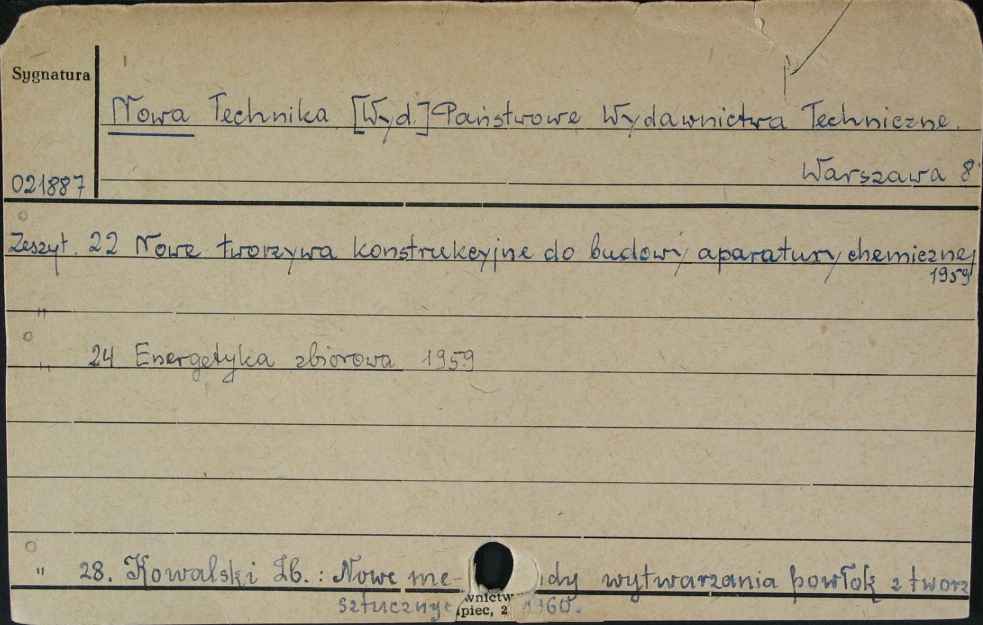 Sygnatura
Nowa Technika [Wyd.] Państwowe Wydawnictwa Techniczne.
Warszawa 8°
021887
Zeszyt. 22 Nowe tworzywa konstrukcyjne do budowy aparatury chemicznej
1959
"
" 24 Energetyka zbiorowa 1959
" 28. Kowalski Zb.: Nowe me- ody wytwarzania powłok z tworz
sztucznyc 1960.
wnictw
piec, 2